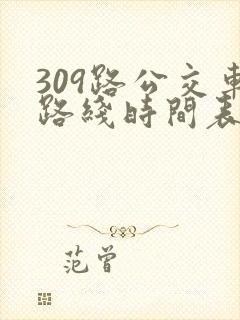 309路公交車
路綫時間表
范曾